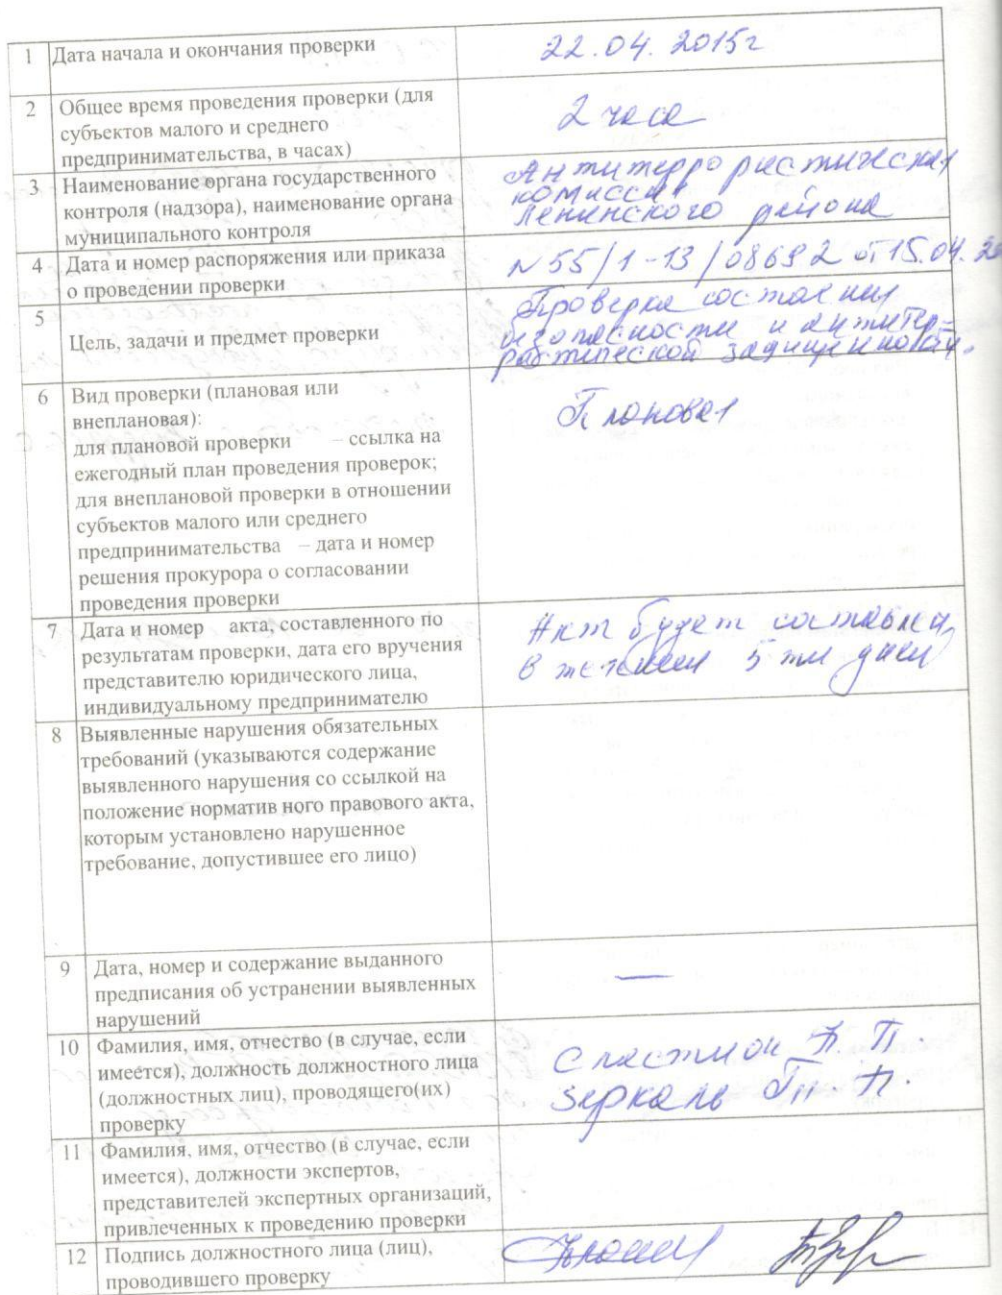 1 Дата начала и окончания проверки 22.04.2015г
2 Общее время проведения проверки (для
субъектов малого и среднего
предпринимательства, в часах)
2 часа
3 Наименование органа государственного
контроля (надзора), наименование органа
муниципального контроля
Антитеррористическая
комиссия
Ленинского района
4 Дата и номер распоряжения или приказа
о проведении проверки
N 55/1-13/08692 от 15.04.20
5 Цель, задачи и предмет проверки
Проверка состояния
безопасности и антитер-
ристической защищенности.
6 Вид проверки (плановая или
внеплановая):
для плановой проверки – ссылка на
ежегодный план проведения проверок;
для внеплановой проверки в отношении
субъектов малого или среднего
предпринимательства – дата и номер
решения прокурора о согласовании
проведения проверки
Плановая
7 Дата и номер акта, составленного по
результатам проверки, дата его вручения
представителю юридического лица,
индивидуальному предпринимателю
Акт будет составлен
в течении 5 ти дней
8 Выявленные нарушения обязательных
требований (указываются содержание
выявленного нарушения со ссылкой на
положение норматив ного правового акта,
которым установлено нарушенное
требование, допустившее его лицо)
9 Дата, номер и содержание выданного
предписания об устранении выявленных
нарушений
—
10 Фамилия, имя, отчество (в случае, если
имеется), должность должностного лица
(должностных лиц), проводящего(их)
проверку
Сластион П.
Зеркаль
11 Фамилия, имя, отчество (в случае, если
имеется), должности экспертов,
представителей экспертных организаций,
привлеченных к проведению проверки
12 Подпись должностного лица (лиц),
проводившего проверку